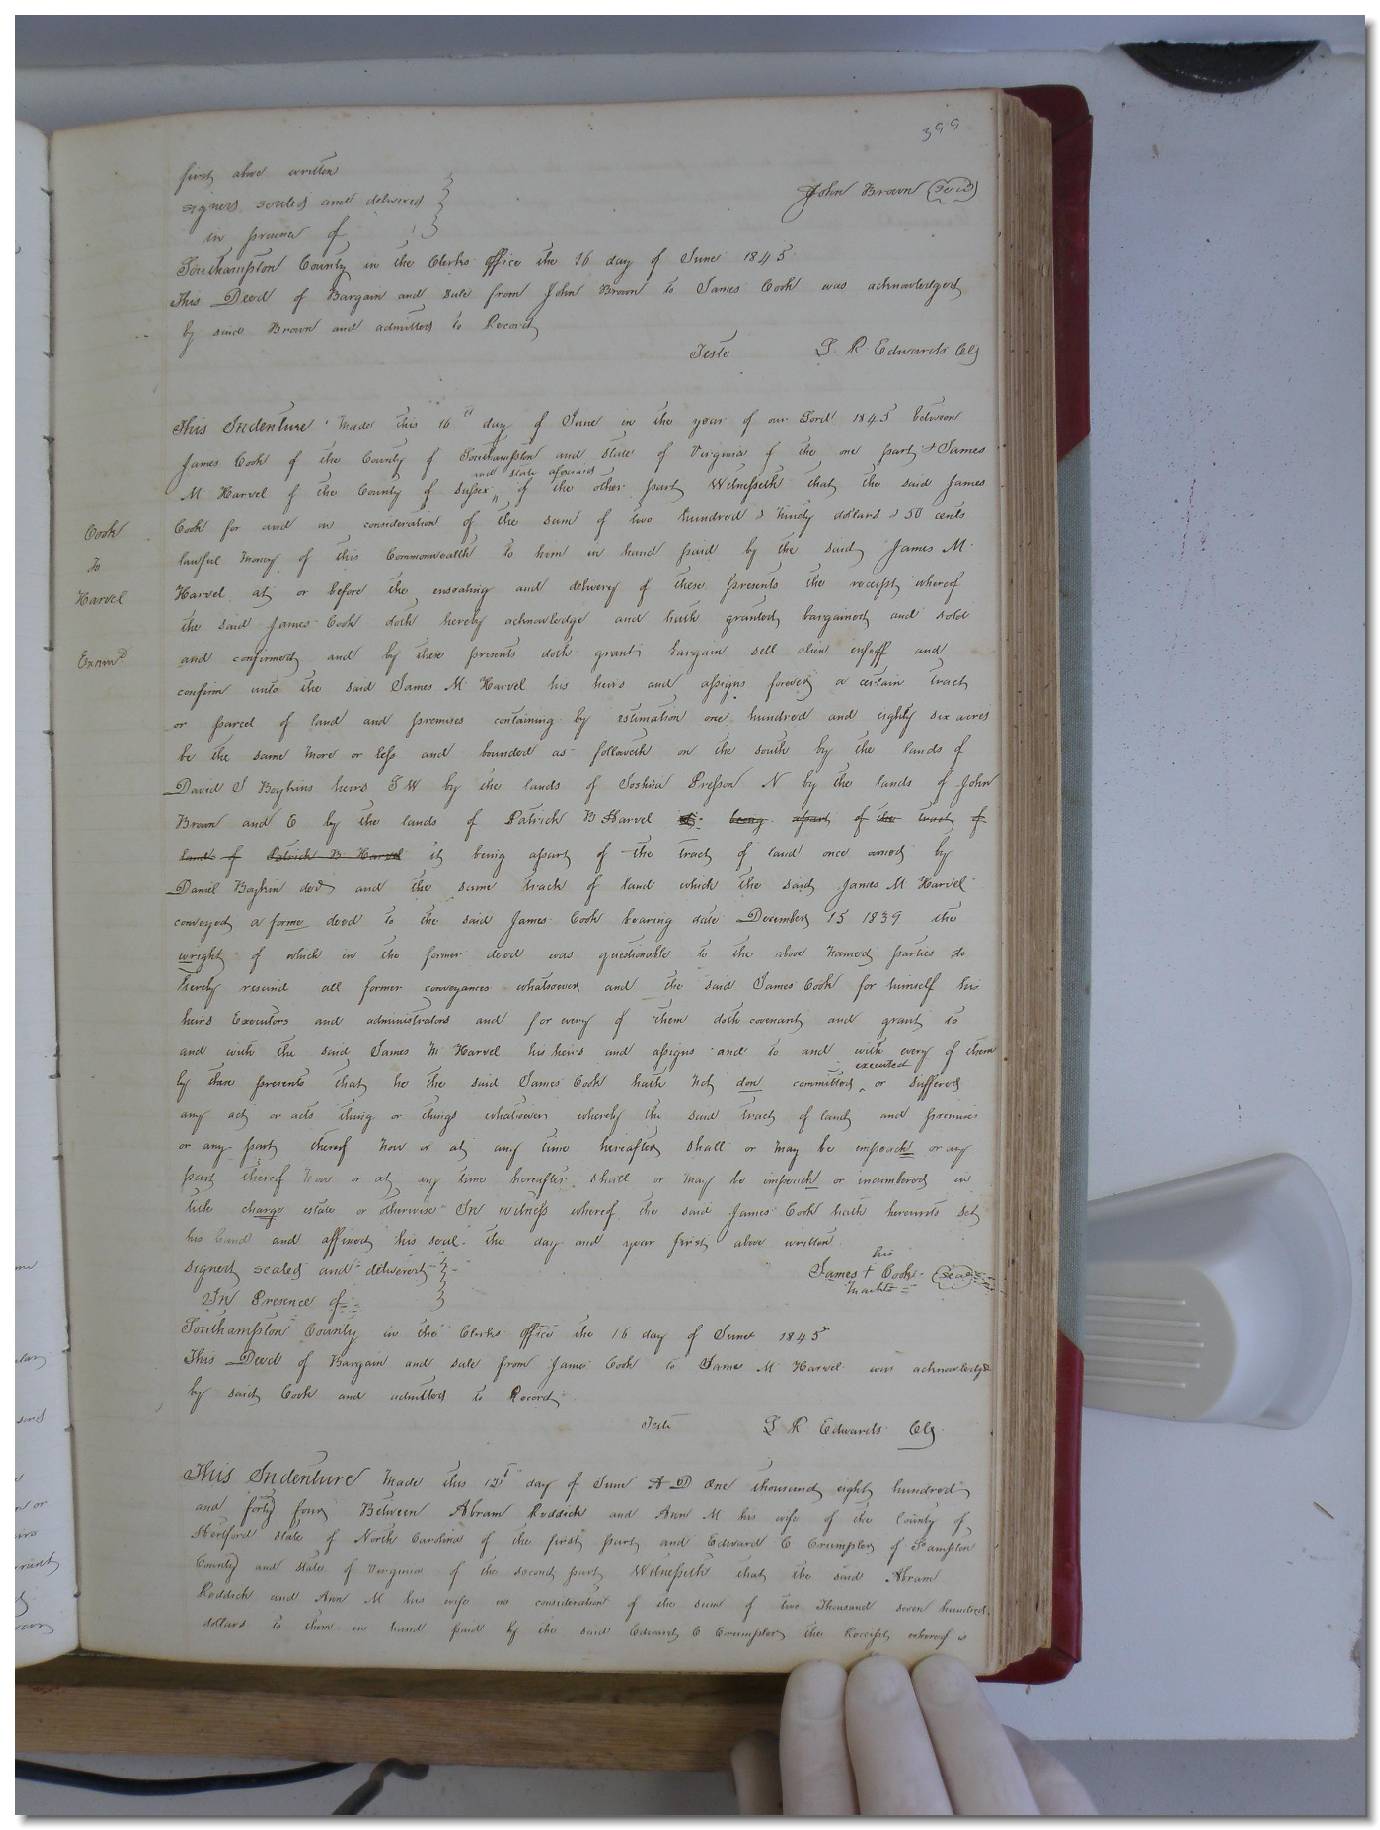 399
first above written
signed sealed and delivered
in presence of
John Brown (Seal)
Southampton County in the Clerks office the 16 day of June 1845
This Deed of Bargain and Sale from John Brown to James Cook was acknowledged
by said Brown and admitted to Record
Teste L R Edwards Clk
This Indenture Made this 16th day of June in the year of our Lord 1845 between
James Cook of the County of Southampton and State of Virginia of the one part & James
M Harvel of the County of Sussex and State aforesaid of the other part Witnesseth that the said James
Cook for and in consideration of the sum of two hundred & Ninety dollars & 50 cents
lawful money of this Commonwealth to him in hand paid by the said James M
Harvel at or before the ensealing and delivery of these presents the receipt whereof
the said James Cook doth hereby acknowledge and hath granted bargained and sold
and confirmed and by these presents doth grant bargain sell alien enfeff and
confirm unto the said James M Harvel his heirs and assigns forever a certain tract
or parcel of land and premises containing by estimation one hundred and eighty six acres
be the same more or less and bounded as followeth on the south by the lands of
David J Boykins heirs S W by the lands of Joshua Presson N by the lands of John
Brown and E by the lands of Patrick B Harvel it being apart of the tract of
lands of Patrick B Harvel it being apart of the tract of land once owned by
Daniel Boykin decd and the same track of land which the said James M Harvel
conveyed a forme deed to the said James Cook bearing date December 15 1839 the
wright of which in the former deed was questionable to the above named parties do
hereby resind all former conveyances whatsoever and the said James Cook for himself his
heirs Executors and administrators and for every of them doth covenant and grant to
and with the said James M Harvel his heirs and assigns and to and with every of them
by these presents that he the said James Cook hath not don committed executed or suffered
any act or acts thing or things whatsoever whereby the said tract of land and premises
or any part thereof now or at any time hereafter shall or may be impeach or any
part thereof now or at any time hereafter shall or may be impeach or incumbered in
title charge estate or otherwise In witness whereof the said James Cook hath hereunto set
his hand and affixed his seal the day and year first above written
signed sealed and delivered
In Presence of
his
James + Cook (Seal)
mark
Southampton County in the Clerks office the 16 day of June 1845
This Deed of Bargain and sale from James Cook to Jame M Harvel was acknowledged
by said Cook and admitted to Record
Teste L R Edwards Clk
Cook
To
Harvel
Exnmd
This Indenture Made this 12th day of June A D One thousand eight hundred
and forty four Between Abram Reddick and Ann M his wife of the County of
Hertford state of North Carolina of the first part and Edward C Crumpler of Hampton
County and state of Virginia of the second part Witnesseth that the said Abram
Reddick and Ann M his wife in consideration of the sum of two Thousand seven hundred
dollars to them in hand paid by the said Edward C Crumpler the Receipt whereof is